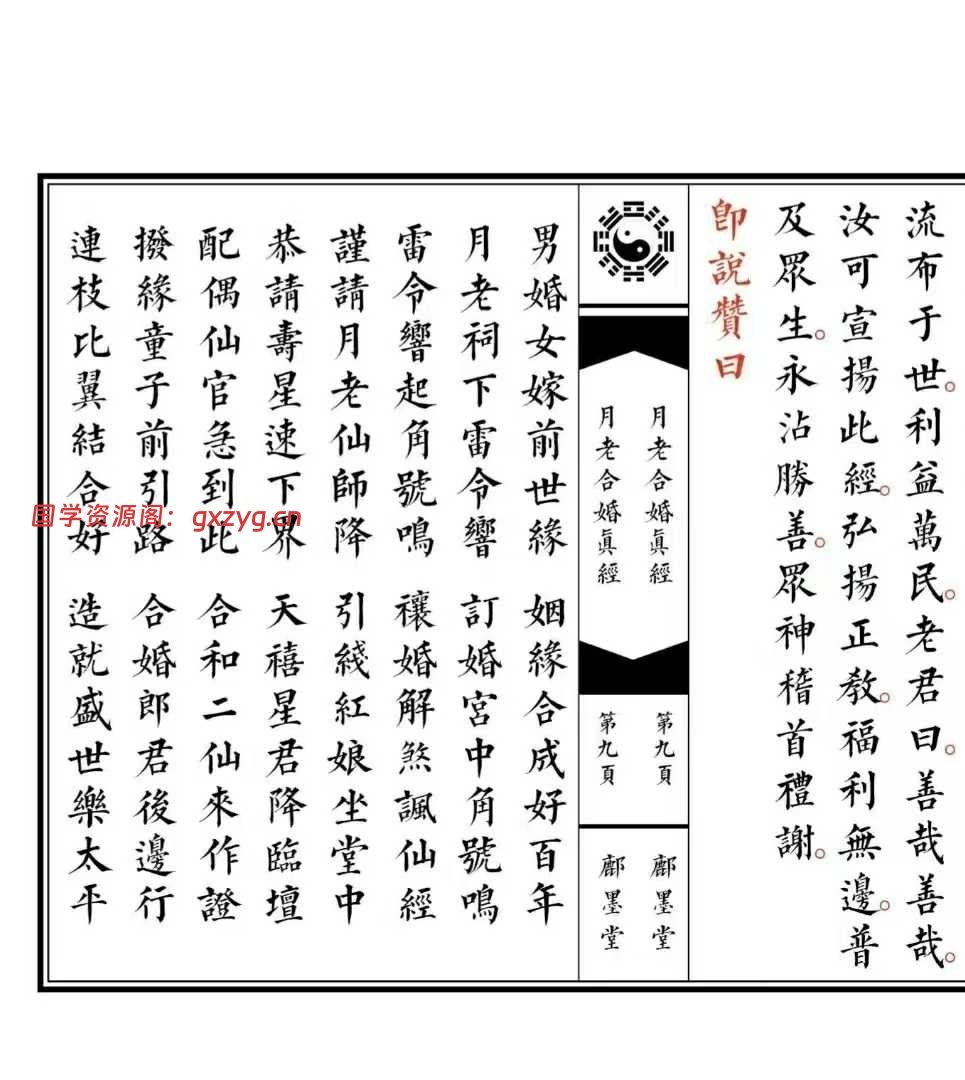 流布于世。利益萬民。老君曰。善哉善哉。
汝可宣揚此經。弘揚正教。福利無邊。普
及眾生。永沾勝善。眾神稽首禮謝。
卽說贊曰
月老合婚眞經
第九頁
鄜墨堂
月老合婚眞經
第九頁
鄜墨堂
男婚女嫁前世緣 姻緣合成好百年
月老祠下雷令響 訂婚宮中角號鳴
雷令響起角號鳴 禳婚解煞諷仙經
謹請月老仙師降 引綫紅娘坐堂中
恭請壽星速下界 天禧星君降臨壇
配偶仙官急到此 合和二仙來作證
撥緣童子前引路 合婚郎君後邊行
連枝比翼結合好 造就盛世樂太平
国学资源阁：gxzyg.cn